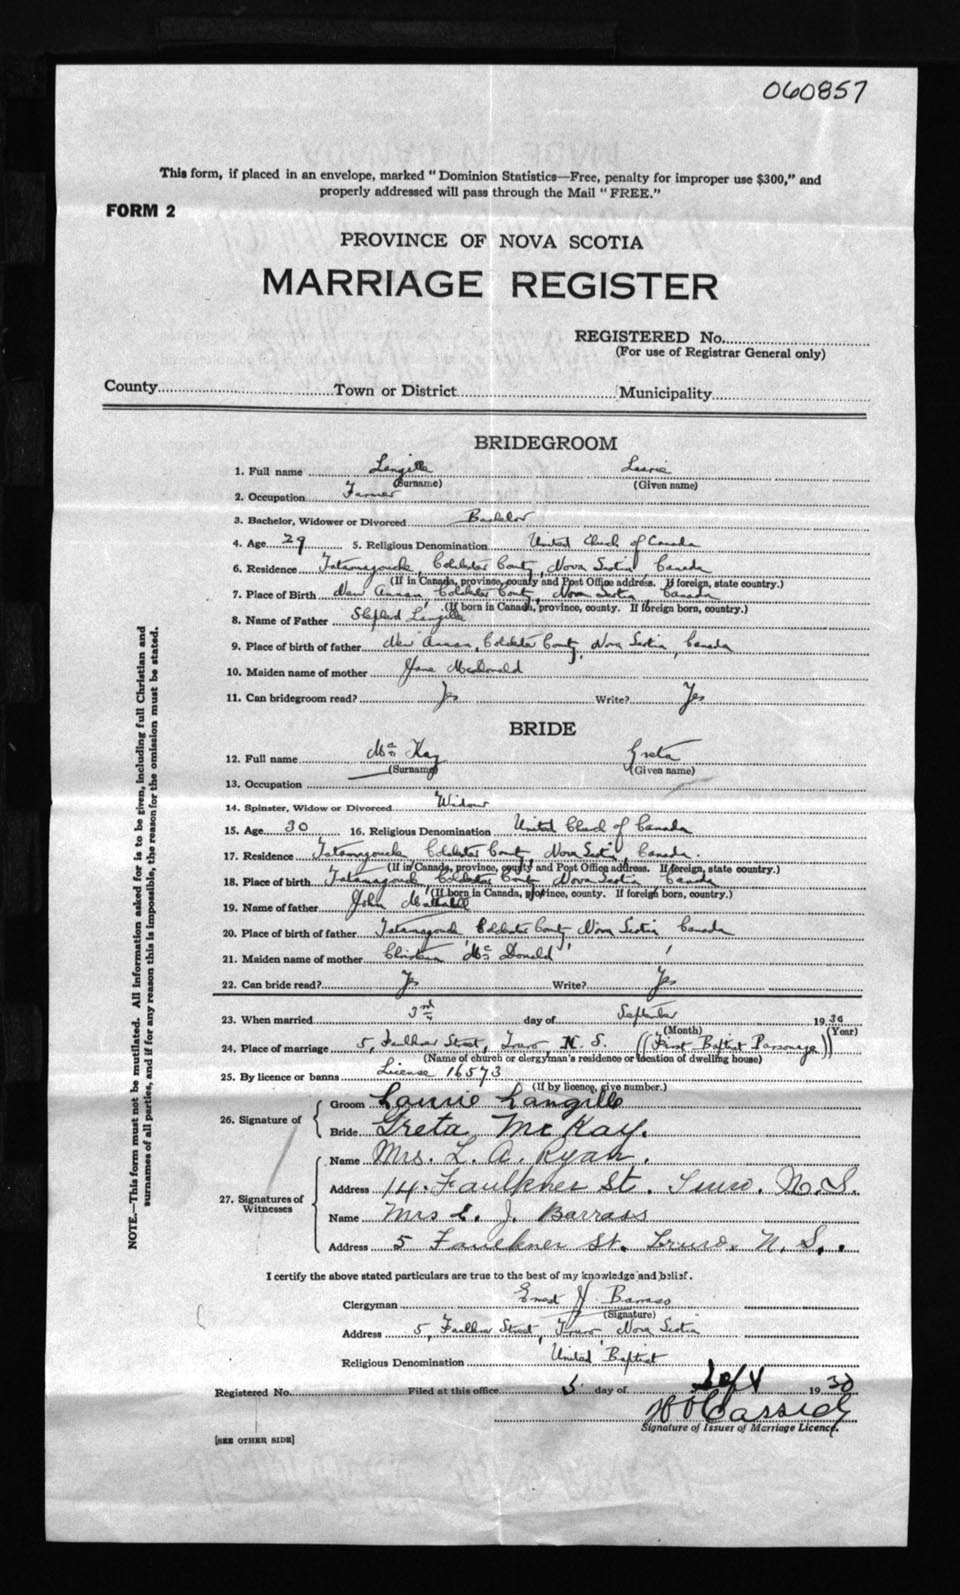 060857
This form, if placed in an envelope, marked "Dominion Statistics—Free, penalty for improper use $300," and
properly addressed will pass through the Mail "FREE."
FORM 2
PROVINCE OF NOVA SCOTIA
MARRIAGE REGISTER
REGISTERED No.
(For use of Registrar General only)
County Town or District Municipality
BRIDEGROOM
1. Full name Langille Laurie
(Surname) (Given name)
2. Occupation Farmer
3. Bachelor, Widower or Divorced Bachelor
4. Age 29 5. Religious Denomination United Church of Canada
6. Residence Tatamagouche, Colchester County, Nova Scotia, Canada
(If in Canada, province, county and Post Office address. If foreign, state country.)
7. Place of Birth New Annan, Colchester County, Nova Scotia, Canada
(If born in Canada, province, county. If foreign born, country.)
8. Name of Father Langille
9. Place of birth of father New Annan, Colchester County, Nova Scotia, Canada
10. Maiden name of mother Jane MacDonald
11. Can bridegroom read? Yes Write? Yes
BRIDE
12. Full name McKay Greta
(Surname) (Given name)
13. Occupation
14. Spinster, Widow or Divorced Widow
15. Age 30 16. Religious Denomination United Church of Canada
17. Residence Tatamagouche Colchester County, Nova Scotia, Canada.
(If in Canada, province, county and Post Office address. If foreign, state country.)
18. Place of birth Tatamagouche Colchester County Nova Scotia Canada
(If born in Canada, province, county. If foreign born, country.)
19. Name of father John
20. Place of birth of father Tatamagouche Colchester County Nova Scotia Canada
21. Maiden name of mother McDonald
22. Can bride read? Yes Write? Yes
23. When married 3rd day of September 1930
(Month) (Year)
24. Place of marriage 5, Faulkner Street, Truro, N. S. (First Baptist Parsonage)
(Name of church or clergyman's residence or location of dwelling house)
25. By licence or banns License 16573
(If by licence, give number.)
26. Signature of Groom Laurie Langille
Bride Greta McKay.
27. Signatures of Witnesses Name Mrs. L. A. Ryan.
Address 14. Faulkner St. Truro. N.S.
Name Mrs E. J. Barrass
Address 5 Faulkner St. Truro. N. S.
I certify the above stated particulars are true to the best of my knowledge and belief.
Clergyman Ernest J. Barrass
(Signature)
Address 5, Faulkner Street, Truro Nova Scotia
Religious Denomination United Baptist
Registered No. Filed at this office 5 day of Sept 1930
Cassidy
Signature of Issuer of Marriage Licence.
[SEE OTHER SIDE]
NOTE.—This form must not be mutilated. All information asked for is to be given, including full Christian and
surnames of all parties, and if for any reason this is impossible, the reason for the omission must be stated.